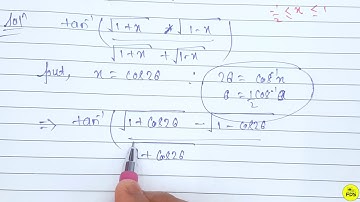 -1/√2 ≤ x ≤ 1
Sol^n tan⁻¹ ( √1+x * √1-x / √1+x + √1-x )
put, x = cos2θ ∴ 2θ = cos⁻¹x
θ = 1/2 cos⁻¹θ
⇒ tan⁻¹ ( √1+cos2θ - √1-cos2θ
√1+cos2θ
PDS